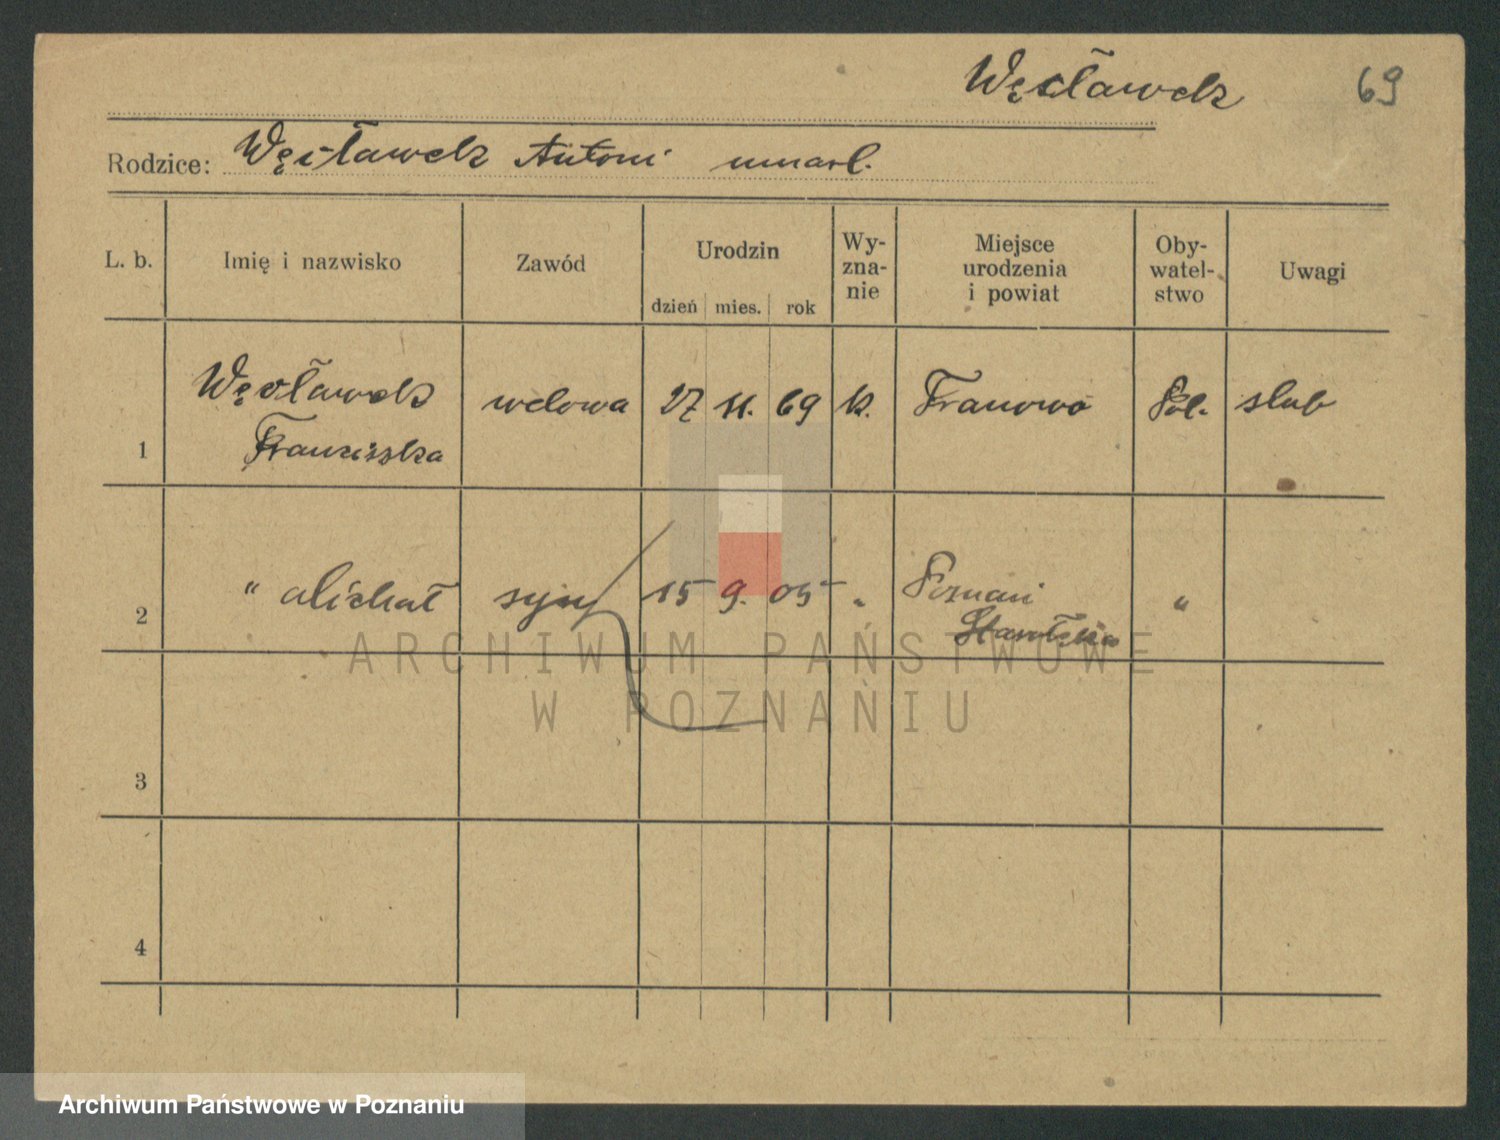 Węcławek 69
Rodzice: Węcławek Antoni umarł.
L. b. Imię i nazwisko Zawód Urodzin dzień mies. rok Wy-zna-nie Miejsce urodzenia i powiat Oby-watel-stwo Uwagi
Węcławek
1 Franciszka wdowa 27 11. 69 k. Franowo Pol. slub
2 " Michał syn 15 9. 05 " Poznań "
3
4
ARCHIWUM PAŃSTWOWE
W POZNANIU
Archiwum Państwowe w Poznaniu